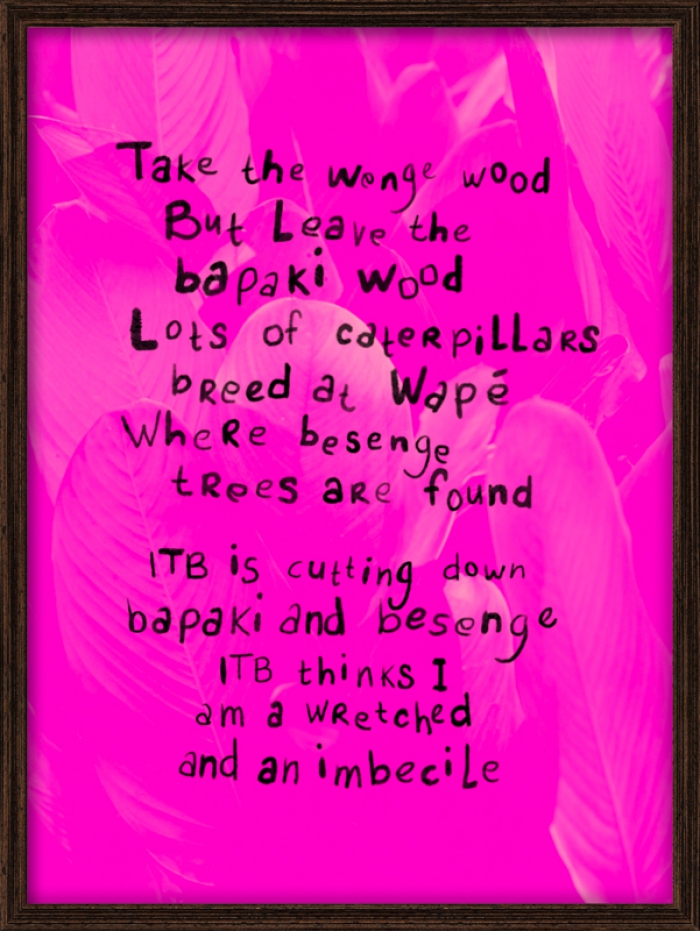 Take the wenge wood
But Leave the
bapaki wood
Lots of caterpillars
breed at Wapé
Where besenge
trees are found
ITB is cutting down
bapaki and besenge
ITB thinks I
am a wretched
and an imbecile